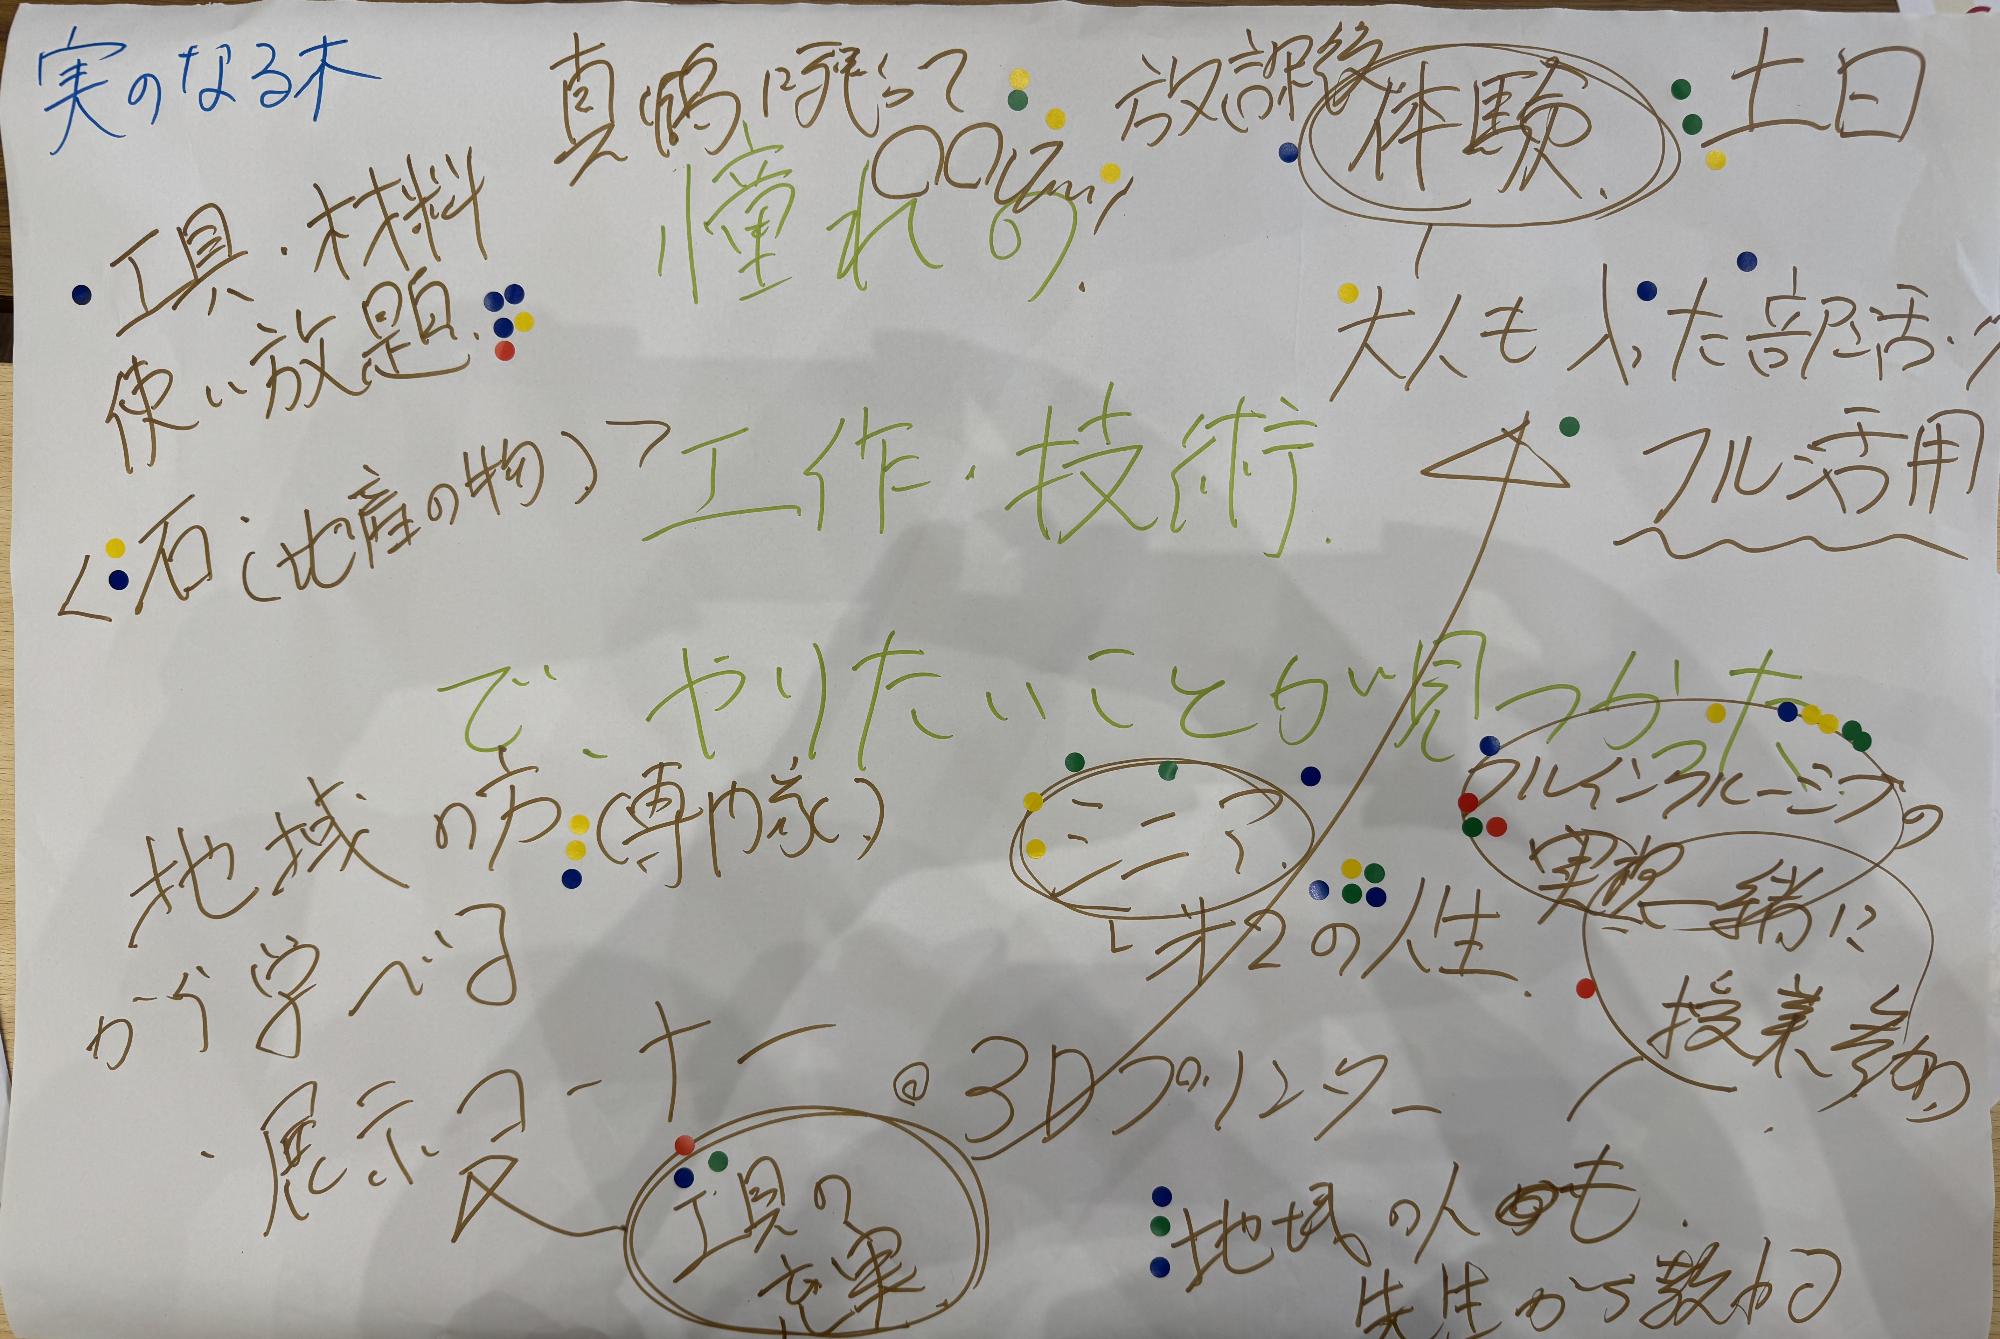 実のなる木
真鶴に残って
〇〇したい
放課後
体験.
土日
憧れの
・工具・材料
使い放題.
大人も入った部活・ク
フル活用
石(地産の物)
工作・技術.
で、やりたいことが見つかった
地域の方(専門家)
から学べる
シニア.
第2の人生.
フルインクルーシブの
実現
一緒に
授業参加
・展示コーナー
◎3Dプリンター
工具の
充実
地域の人も.
先生から教わる